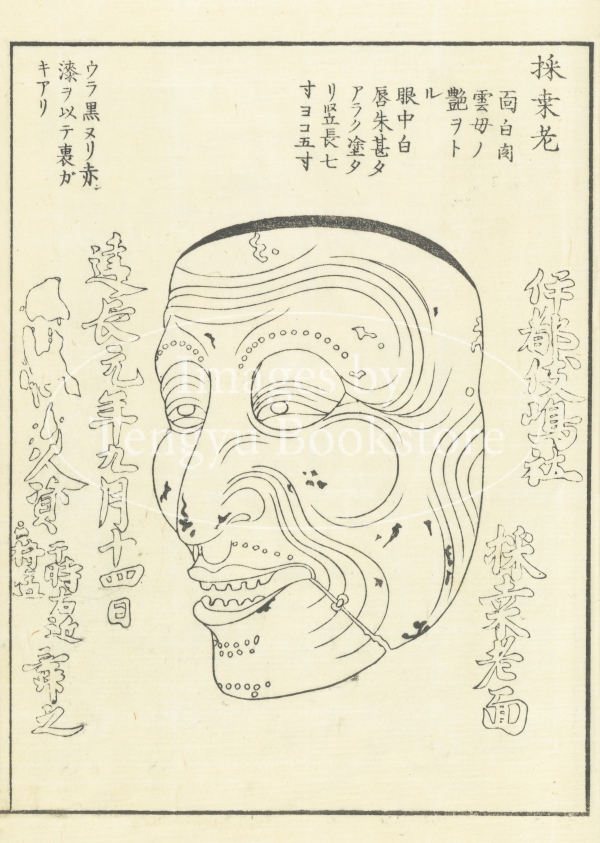 採桒老
面白肉
雲母ノ
艶ヲト
ル
眼中白
唇朱甚タ
アラク塗タ
リ竪長七
寸ヨコ五寸
伊都伎嶋社
採桒老面
ウラ黒ヌリ赤
漆ヲ以テ裏ガ
キアリ
建長元年九月十四日
Images by
Tengyu Bookstore